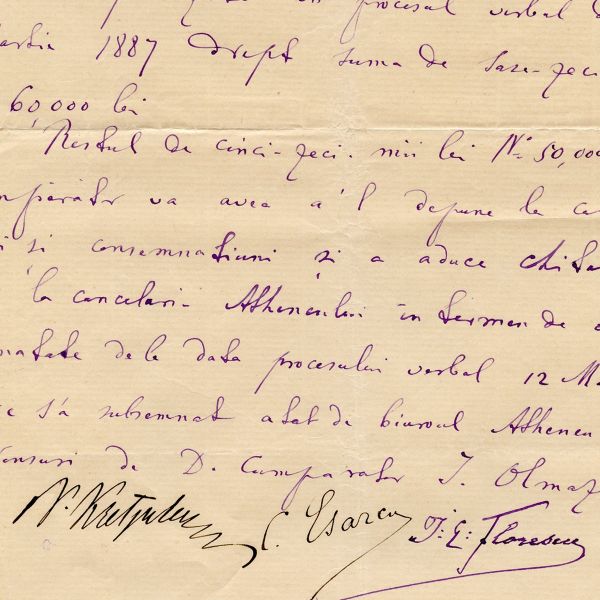 procesul verbal
1887 drept suma de Sase-zeci
60,000 lei
Restul de cinci-zeci mii lei No 50,000
va avea a'l depune la
si consemnatiuni și a aduce chita
la cancelaria Atheneului in termen de
de la data procesului verbal 12 M
s'a subsemnat atat de biuroul Atheneu
de D. Cumparator I. Olma
C. Esarcu I: E: Florescu